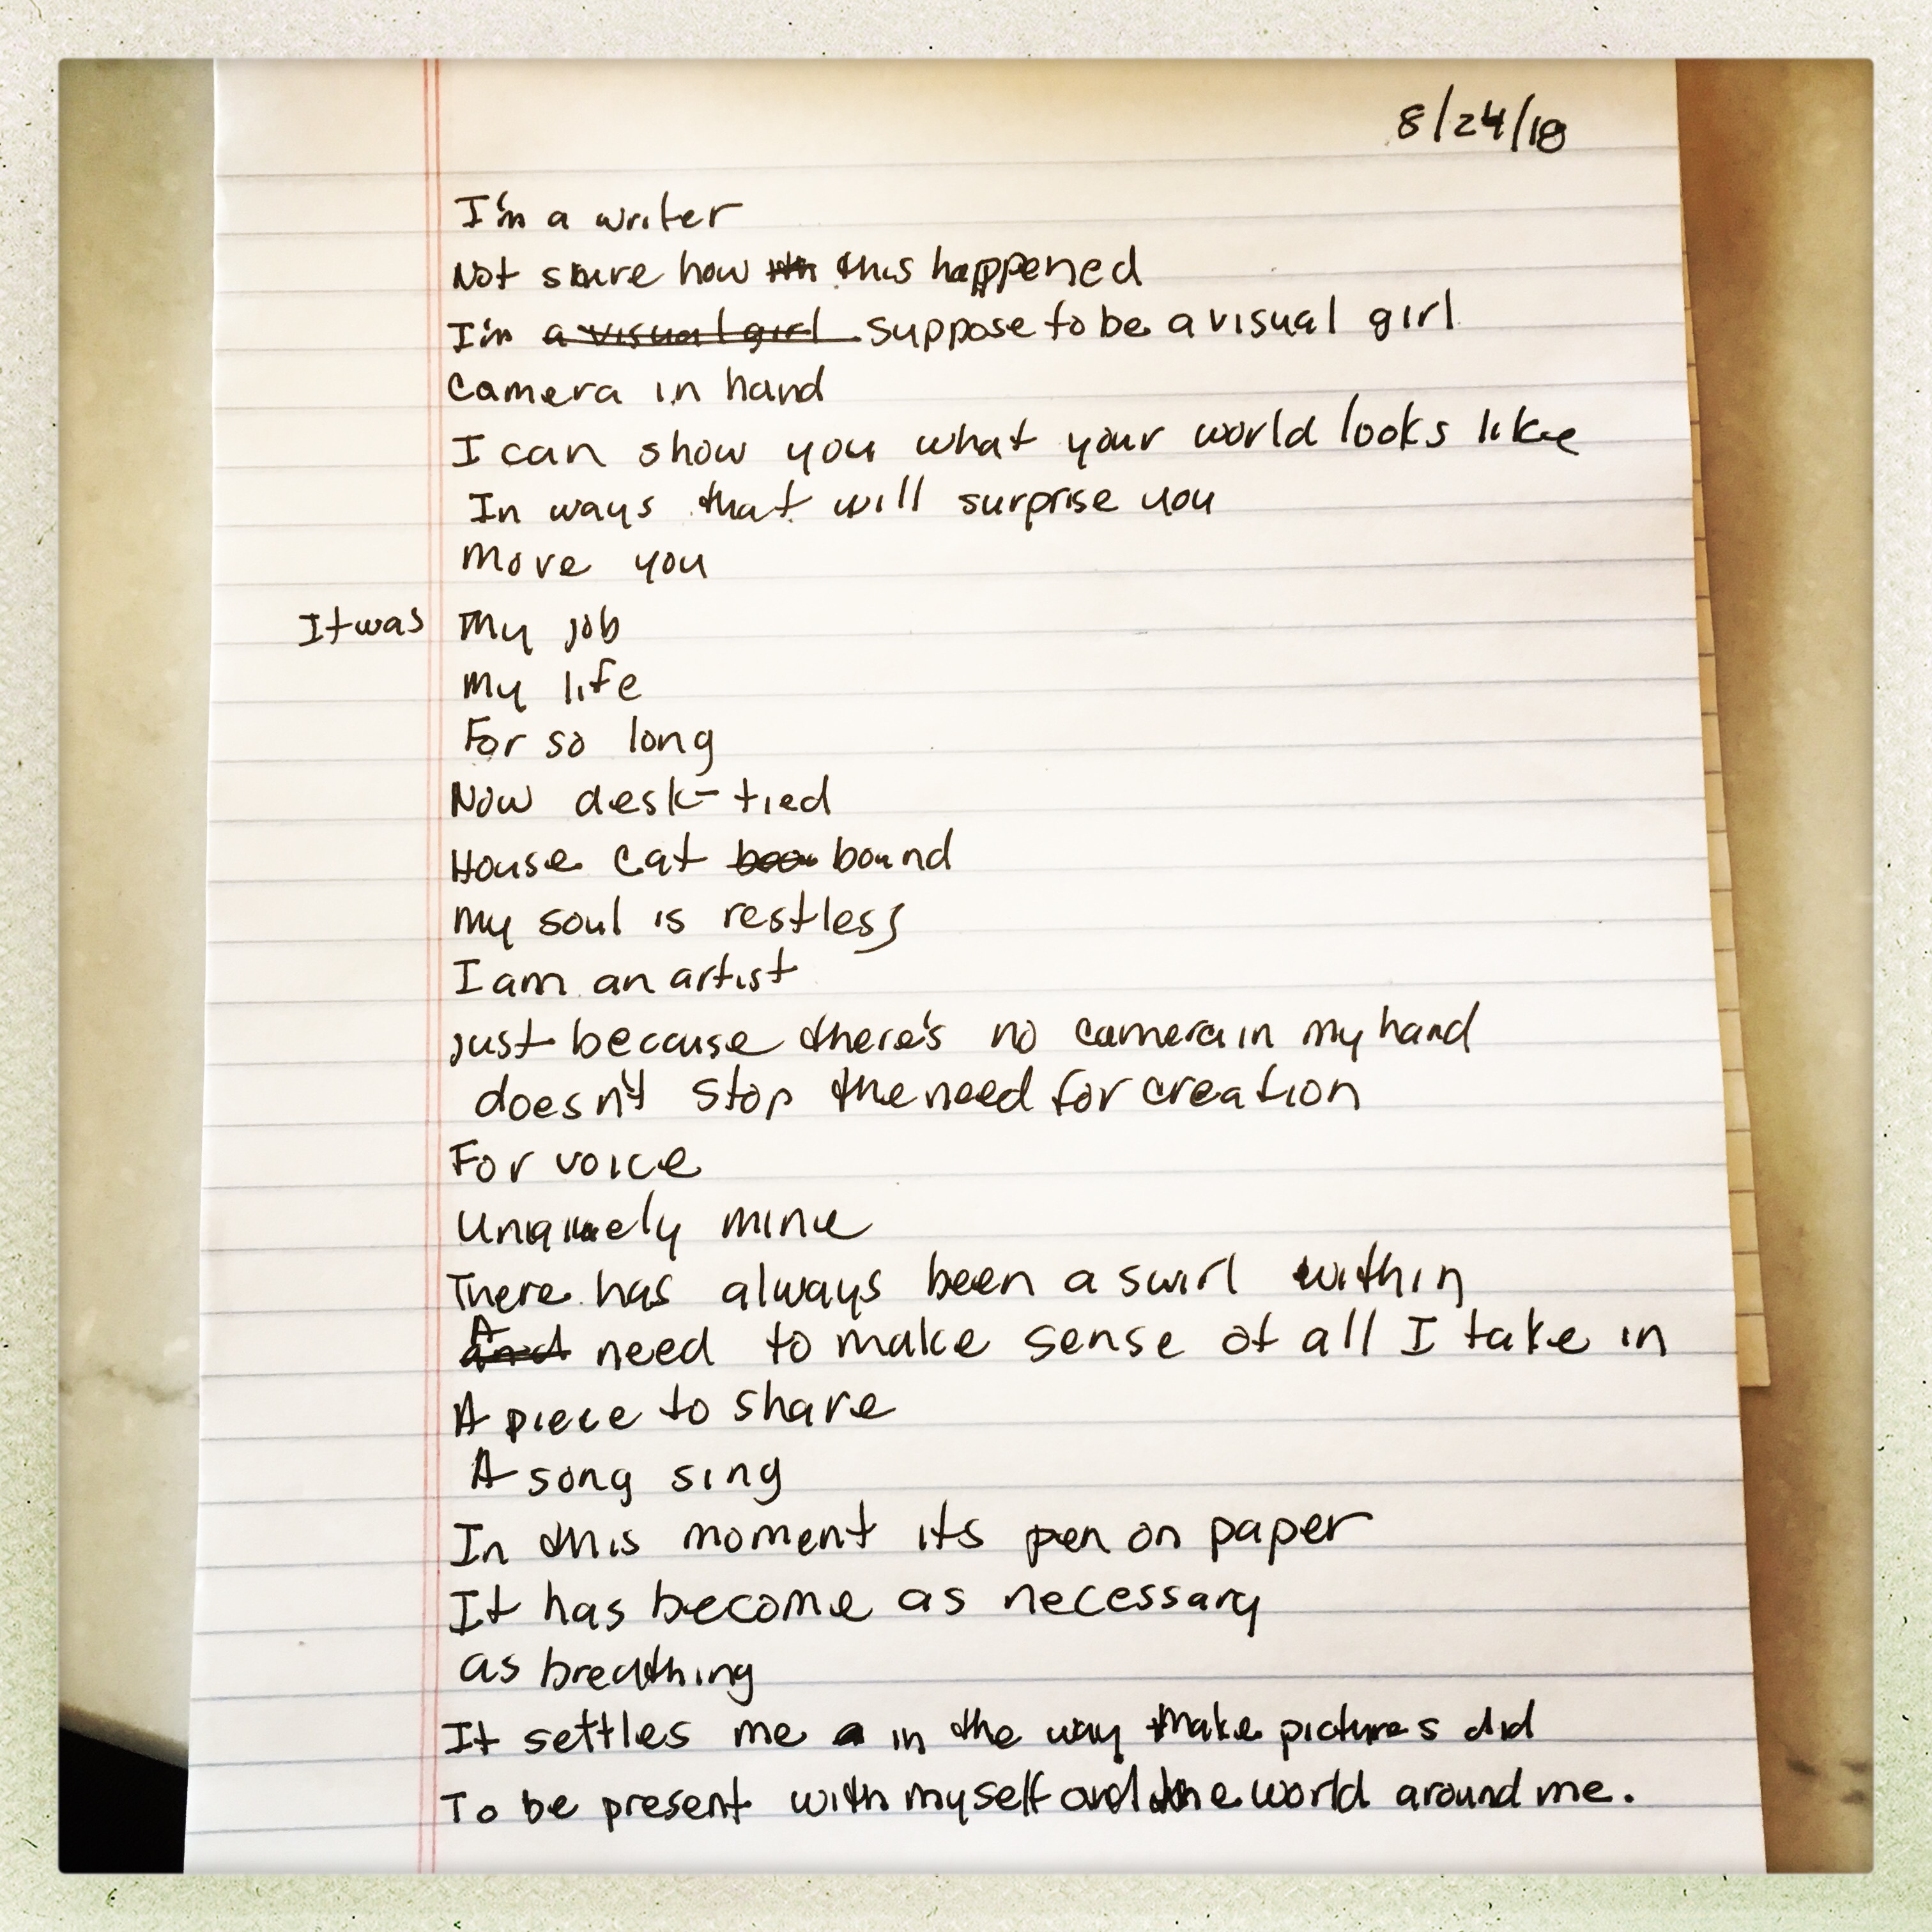 8/24/18
I'm a writer
Not sure how this happened
I'm a visual girl suppose to be a visual girl
Camera in hand
I can show you what your world looks like
In ways that will surprise you
Move you
It was My job
My life
For so long
Now desk-tied
House cat bound
My soul is restless
I am an artist
Just because there's no camera in my hand
doesn't stop the need for creation
For voice
Uniquely mine
There has always been a swirl within
A need to make sense of all I take in
A piece to share
A song sing
In this moment its pen on paper
It has become as necessary
as breathing
It settles me in the way make pictures did
To be present with myself and the world around me.